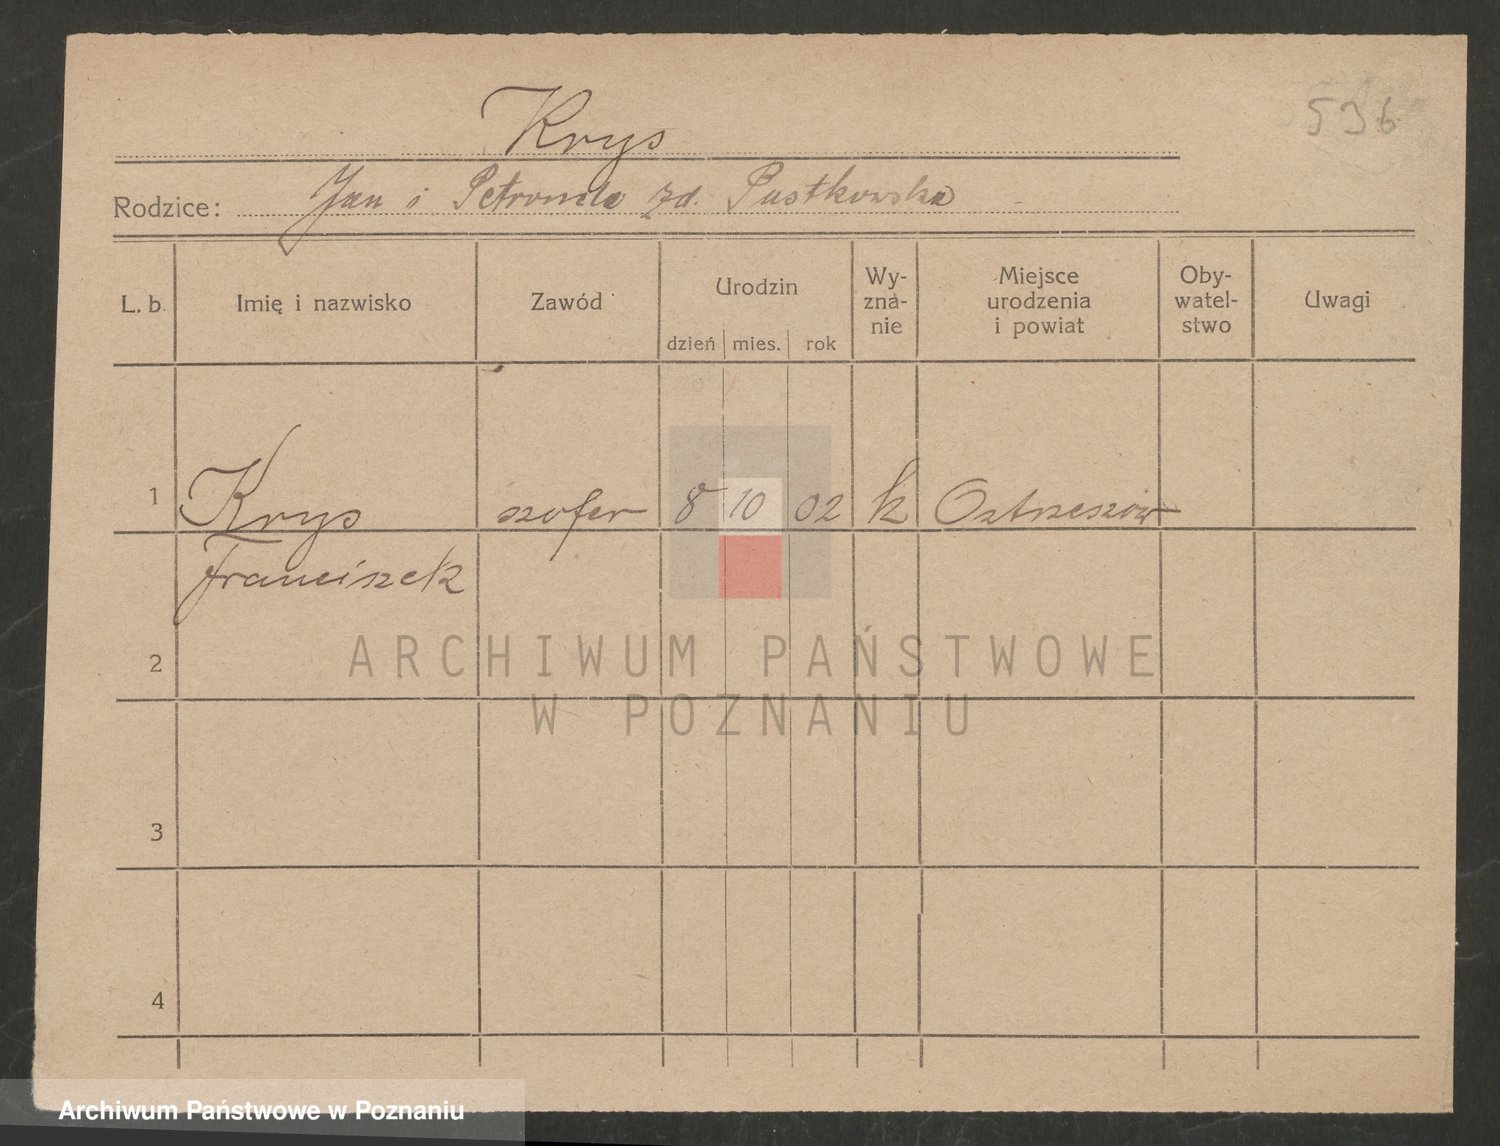 536
Krys
Rodzice: Jan i Petronela zd. Pustkowska
L. b.
Imię i nazwisko
Zawód
Urodzin
dzień mies. rok
Wy-
zna-
nie
Miejsce
urodzenia
i powiat
Oby-
watel-
stwo
Uwagi
1 Krys szofer 8 10 02 k Ostrzeszów
Franciszek
2
3
4
ARCHIWUM PAŃSTWOWE
W POZNANIU
Archiwum Państwowe w Poznaniu